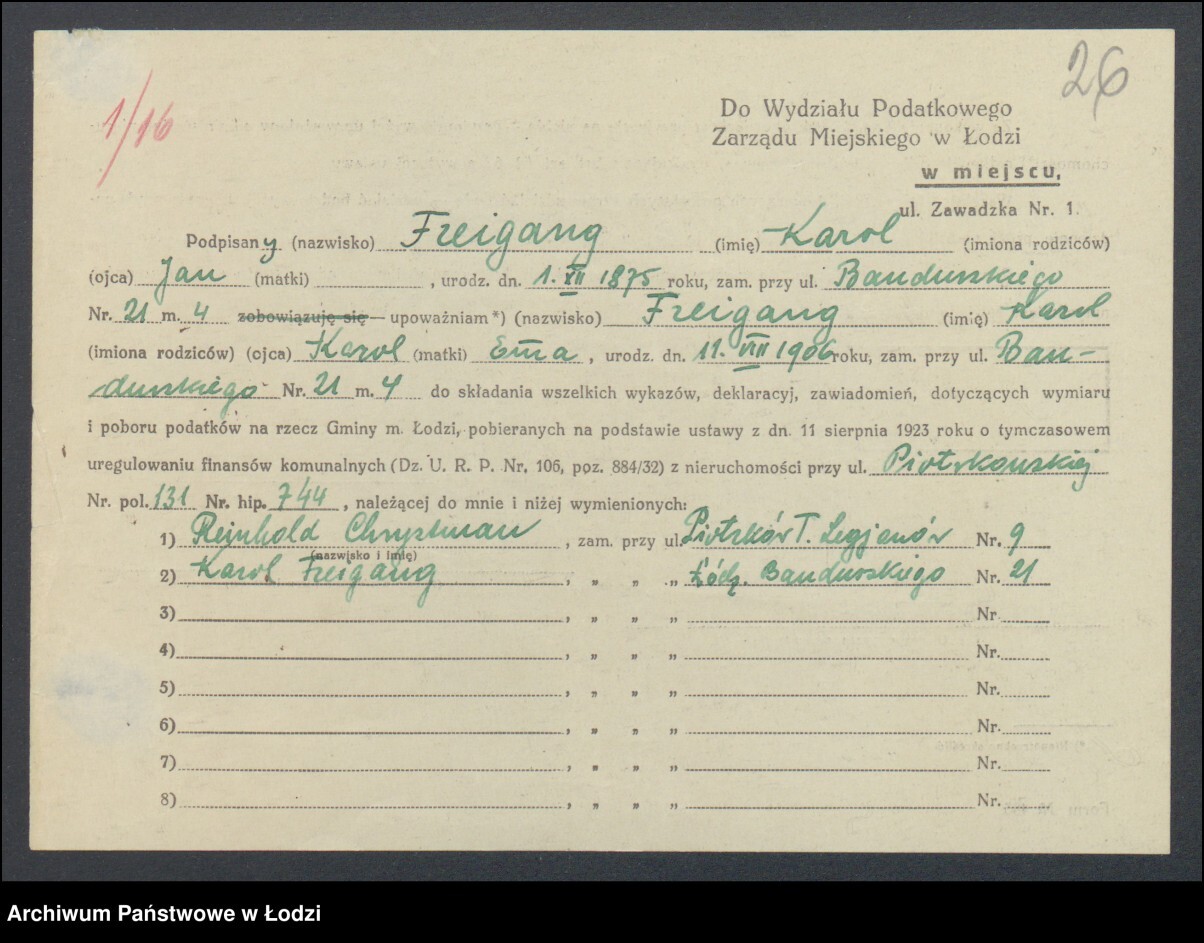 26
1/16
Do Wydziału Podatkowego
Zarządu Miejskiego w Łodzi
w miejscu,
ul. Zawadzka Nr. 1.
Podpisany (nazwisko) Freigang (imię) Karol (imiona rodziców)
(ojca) Jan (matki) , urodz. dn. 1. XII 1875 roku, zam. przy ul. Bandurskiego
Nr. 21 m. 4 zobowiązuję się — upoważniam *) (nazwisko) Freigang (imię) Karol
(imiona rodziców) (ojca) Karol (matki) Ema , urodz. dn. 11. VIII 1906 roku, zam. przy ul. Ban-
durskiego Nr. 21 m. 4 do składania wszelkich wykazów, deklaracyj, zawiadomień, dotyczących wymiaru
i poboru podatków na rzecz Gminy m. Łodzi, pobieranych na podstawie ustawy z dn. 11 sierpnia 1923 roku o tymczasowem
uregulowaniu finansów komunalnych (Dz. U. R. P. Nr. 106, poz. 884/32) z nieruchomości przy ul. Piotrkowskiej
Nr. pol. 131 Nr. hip. 744 , należącej do mnie i niżej wymienionych:
1) Reinhold Chrystman , zam. przy ul. Piotrków T. Legjonów Nr. 9
(nazwisko i imię)
2) Karol Freigang , „ „ „ Łódź. Bandurskiego Nr. 21
3) , „ „ „ Nr.
4) , „ „ „ Nr.
5) , „ „ „ Nr.
6) , „ „ „ Nr.
7) , „ „ „ Nr.
8) , „ „ „ Nr.
Archiwum Państwowe w Łodzi